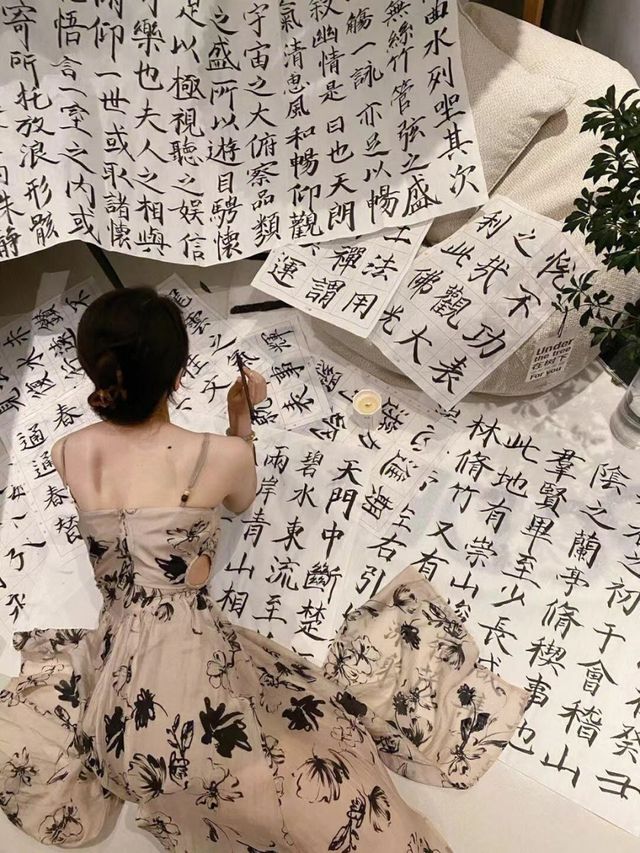 曲水列坐其次
無絲竹管弦之盛
觴一詠亦足以暢
敘幽情是日也天朗
氣清惠風和暢仰觀
宇宙之大俯察品類
之盛所以遊目騁懷
足以極視聽之娛信
可樂也夫人之相與
俯仰一世或取諸懷
悟言一室之内或
寄所托放浪形骸
殊靜
悅不功表
之哉觀大
利此佛光
法用
禪謂
運
Under
the tree
在树下
For you
癸丑
之初于會稽山
陰之蘭亭脩稧事也
羣賢畢至少長咸
此地有崇山
林脩竹又有
左右引
天門中斷楚
碧水東流至
兩岸青山相
春春替
通通